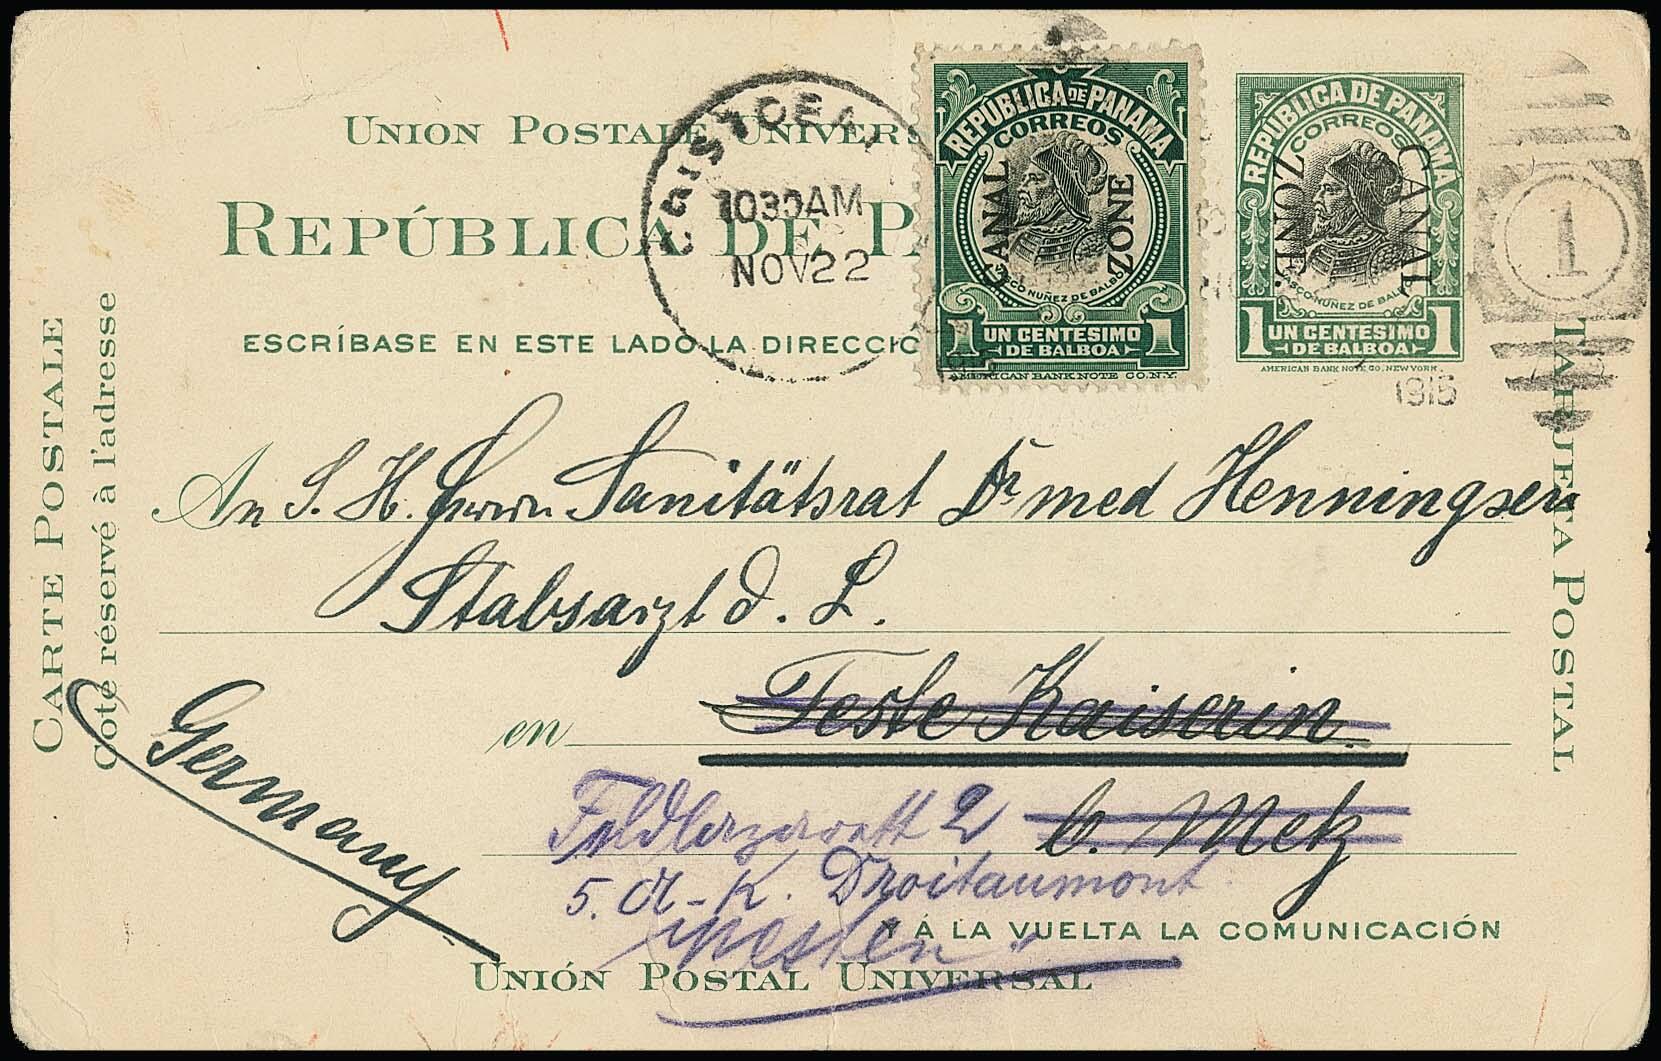 UNION POSTALE UNIVERS
REPÚBLICA DE P
ESCRÍBASE EN ESTE LADO LA DIRECCIÓ
CRISTOBAL
1030AM
NOV22
REPÚBLICA DE PANAMA
CORREOS
CANAL ZONE
VASCO NUÑEZ DE BALBOA
1 UN CENTESIMO DE BALBOA 1
AMERICAN BANK NOTE CO. N.Y.
REPÚBLICA DE PANAMÁ
CORREOS
CANAL ZONE.
VASCO NUÑEZ DE BALBOA
1 UN CENTESIMO DE BALBOA 1
AMERICAN BANK NOTE CO. NEW YORK.
1915
1
CARTE POSTALE
Coté réservé à l'adresse
TARJETA POSTAL
An S. H. Herrn Sanitätsrat Dr med Henningsen
Stabsarzt d. L.
en Feste Kaiserin
b. Metz
Germany
2
5. A-K. Droitaumont
Westen
Y Á LA VUELTA LA COMUNICACIÓN
UNIÓN POSTAL UNIVERSAL